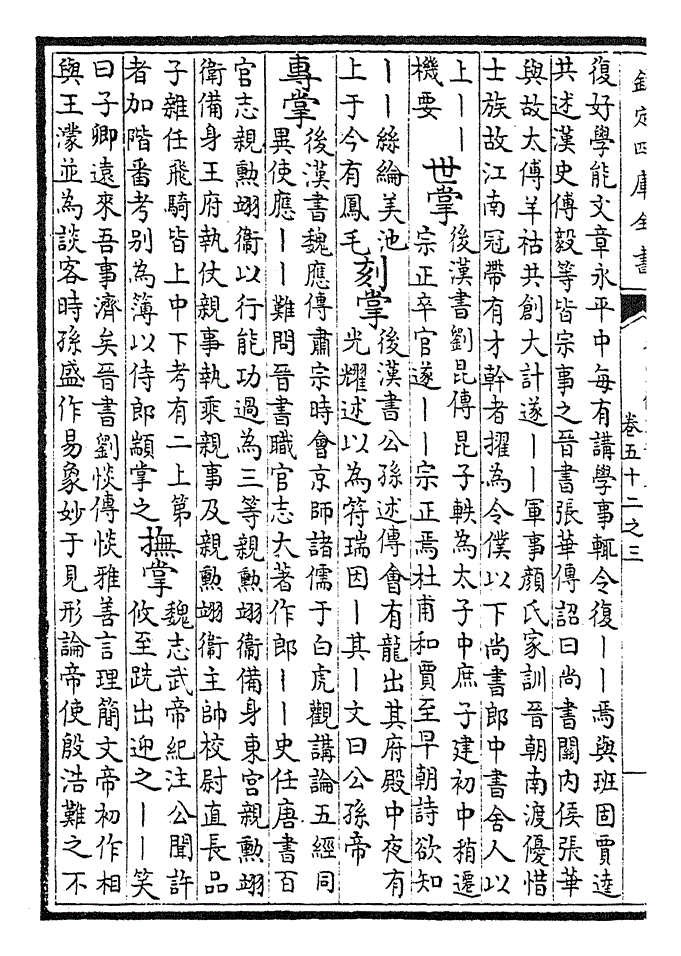 欽定四庫全書
卷五十二之三
復好學能文章永平中每有講學事輒令復丨丨焉與班固賈逵
共述漢史傅毅等皆宗事之晉書張華傳詔曰尚書關內侯張華
與故太傅羊祜共創大計遂丨丨軍事顏氏家訓晉朝南渡優惜
士族故江南冠帶有才幹者擢為令僕以下尚書郎中書舍人以
上丨丨
機要
世掌
後漢書劉昆傳昆子軼為太子中庶子建初中稍遷
宗正卒官遂丨丨宗正焉杜甫和賈至早朝詩欲知
丨丨絲綸美池
上于今有鳳毛
刻掌
後漢書公孫述傳會有龍出其府殿中夜有
光耀述以為符瑞因丨其丨文曰公孫帝
專掌
後漢書魏應傳肅宗時會京師諸儒于白虎觀講論五經同
異使應丨丨難問晉書職官志大著作郎丨丨史任唐書百
官志親勲翊衞以行能功過為三等親勲翊衞備身東宫親勲翊
衞備身王府執仗親事執乘親事及親勲翊衞主帥校尉直長品
子雜任飛騎皆上中下考有二上第
者加階番考别為簿以侍郎顓掌之
撫掌
魏志武帝紀注公聞許
攸至跣出迎之丨丨笑
曰子卿遠來吾事濟矣晉書劉惔傳惔雅善言理簡文帝初作相
與王濛並為談客時孫盛作易象妙于見形論帝使殷浩難之不